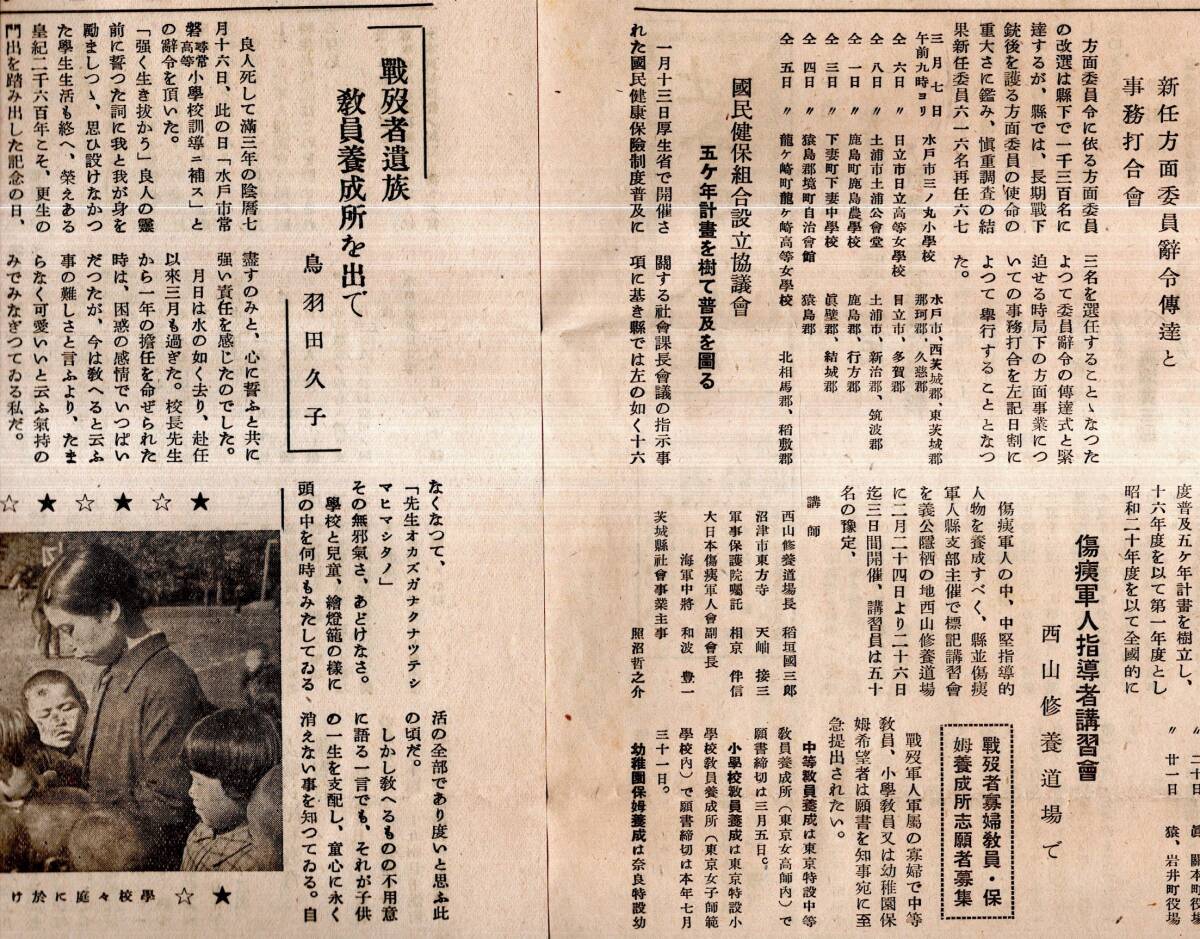 新任方面委員辭令傳達と
事務打合會
方面委員令に依る方面委員
の改選は縣下で一千三百名に
達するが、縣では、長期戰下
銃後を護る方面委員の使命の
重大さに鑑み、愼重調査の結
果新任委員六一六名再任六七
三名を選任することゝなつた
よつて委員辭令の傳達式と緊
迫せる時局下の方面事業につ
いての事務打合を左記日割に
よつて擧行することとなつ
た。
三月七日
午前九時ヨリ
水戸市三ノ丸小學校
水戸市、西茨城郡、東茨城郡
那珂郡、久慈郡
仝六日 〃 日立市日立高等女學校 日立市、多賀郡
仝八日 〃 土浦市土浦公會堂 土浦市、新治郡、筑波郡
仝一日 〃 鹿島町鹿島農學校 鹿島郡、行方郡
仝三日 〃 下妻町下妻中學校 眞壁郡、結城郡
仝四日 〃 猿島郡境町自治會館 猿島郡
仝五日 〃 龍ケ崎町龍ケ崎高等女學校 北相馬郡、稻敷郡
國民健保組合設立協議會
五ケ年計畫を樹て普及を圖る
一月十三日厚生省で開催さ
れた國民健康保險制度普及に
關する社會課長會議の指示事
項に基き縣では左の如く十六
度普及五ケ年計畫を樹立し、
十六年度を以て第一年度とし
昭和二十年度を以て全國的に
〃 二十日
眞、關本町役場
〃 廿一日 猿、岩井町役場
傷痍軍人指導者講習會
西山修養道場で
傷痍軍人の中、中堅指導的
人物を養成すべく、縣並傷痍
軍人縣支部主催で標記講習會
を義公隱栖の地西山修養道場
に二月二十四日より二十六日
迄三日間開催、講習員は五十
名の豫定、
講師
西山修養道場長 稻垣國三郎
沼津市東方寺 天岫接三
軍事保護院囑託 相京伴信
大日本傷痍軍人會副會長
海軍中將 和波豊一
茨城縣社會事業主事
照沼哲之介
戰歿者寡婦敎員・保
姆養成所志願者募集
戰歿軍人軍屬の寡婦で中等
敎員、小學敎員又は幼稚園保
姆希望者は願書を知事宛に至
急提出されたい。
中等敎員養成は東京特設中等
敎員養成所（東京女高師内）で
願書締切は三月五日。
小學校敎員養成は東京特設小
學校敎員養成所（東京女子師範
學校内）で願書締切は本年七月
三十一日。
幼稚園保姆養成は奈良特設幼
戰歿者遺族
敎員養成所を出て
鳥羽田久子
良人死して滿三年の陰曆七
月十六日、此の日「水戸市常
磐尋常高等小學校訓導ニ補ス」と
の辭令を頂いた。
「强く生き拔かう」良人の靈
前に誓つた詞に我と我が身を
勵ましつゝ、思ひ設けなかつ
た學生生活も終へ、榮えある
皇紀二千六百年こそ、更生の
門出を踏み出した記念の日、
盡すのみと、心に誓ふと共に
强い責任を感じたのでした。
月日は水の如く去り、赴任
以來三月も過ぎた。校長先生
から一年の擔任を命ぜられた
時は、困惑の感情でいつぱい
だつたが、今は敎へると云ふ
事の難しさと言ふより、たま
らなく可愛いいと云ふ氣持の
みでみなぎつてゐる私だ。
なくなつて、
「先生オカズガナクナツテシ
マヒマシタノ」
その無邪氣さ、あどけなさ。
學校と兒童、繪燈籠の樣に
頭の中を何時もみたしてゐる
活の全部であり度いと思ふ此
の頃だ。
しかし敎へるものの不用意
に語る一言でも、それが子供
の一生を支配し、童心に永く
消えない事を知つてゐる。自
☆★☆★☆★
け於に庭々校學 ☆★